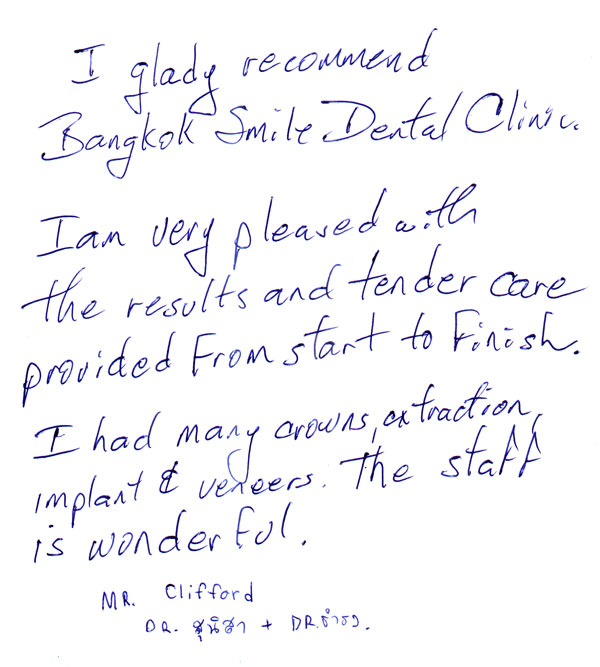 I glady recommend
Bangkok Smile Dental Clinic.
I am very pleased with
the results and tender care
provided From start to Finish.
I had many crowns, extraction,
implant & veneers. The staff
is wonderful.
MR. Clifford
DR. สุนิสา + DR. ธำรง.